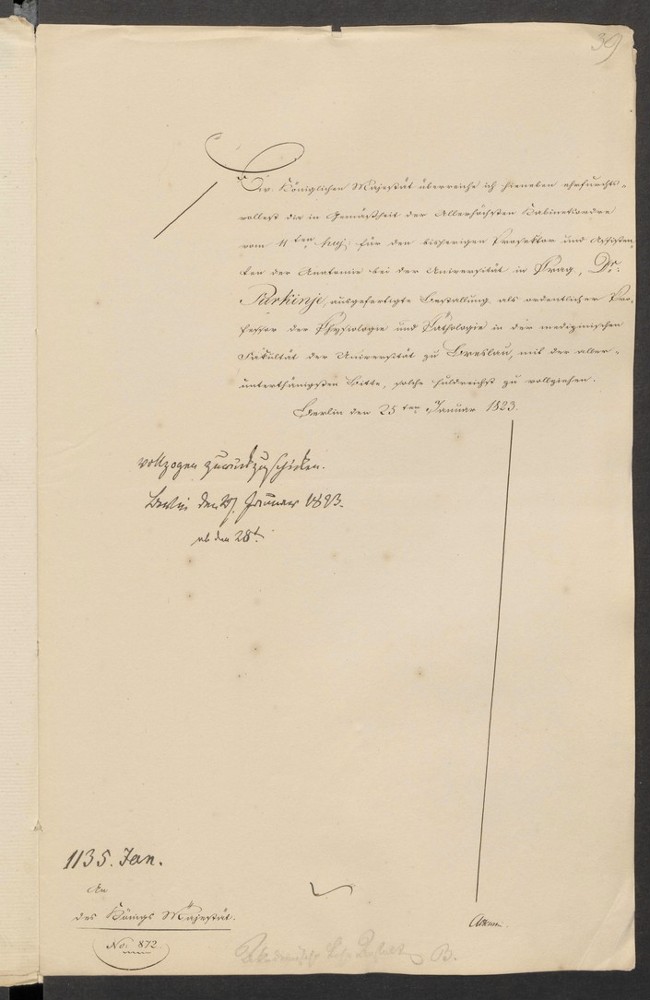 39
Ew. Königlichen Majestät überreiche ich hieneben ehrfurchts-
vollest die in Gemäßheit der Allerhöchsten Kabinetsordre
vom 11ten für den bisherigen Prosektor und Assisten-
ten der Anatomie bei der Universität in Prag, Dr.
Purkinje, ausgefertigte Bestallung als ordentlicher Pro-
fessor der Physiologie und Pathologie in der medizinischen
Fakultät der Universität zu Breslau, mit der aller-
unterthänigsten Bitte, solche huldreichst zu vollziehen.
Berlin den 25ten Januar 1823.
vollzogen zurückzuschicken.
Berlin den Januar 1823.
ab den 28t
1135. Jan.
An
des Königs Majestät.
No. 872
Altenstein.
B.